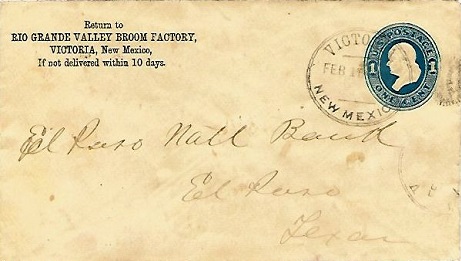 Return to
RIO GRANDE VALLEY BROOM FACTORY,
VICTORIA, New Mexico,
If not delivered within 10 days.
VICTO
FEB
NEW MEXIC
U.S. POSTAGE
1 1
ONE CENT
El Paso Natl Bank
El Paso
Texas